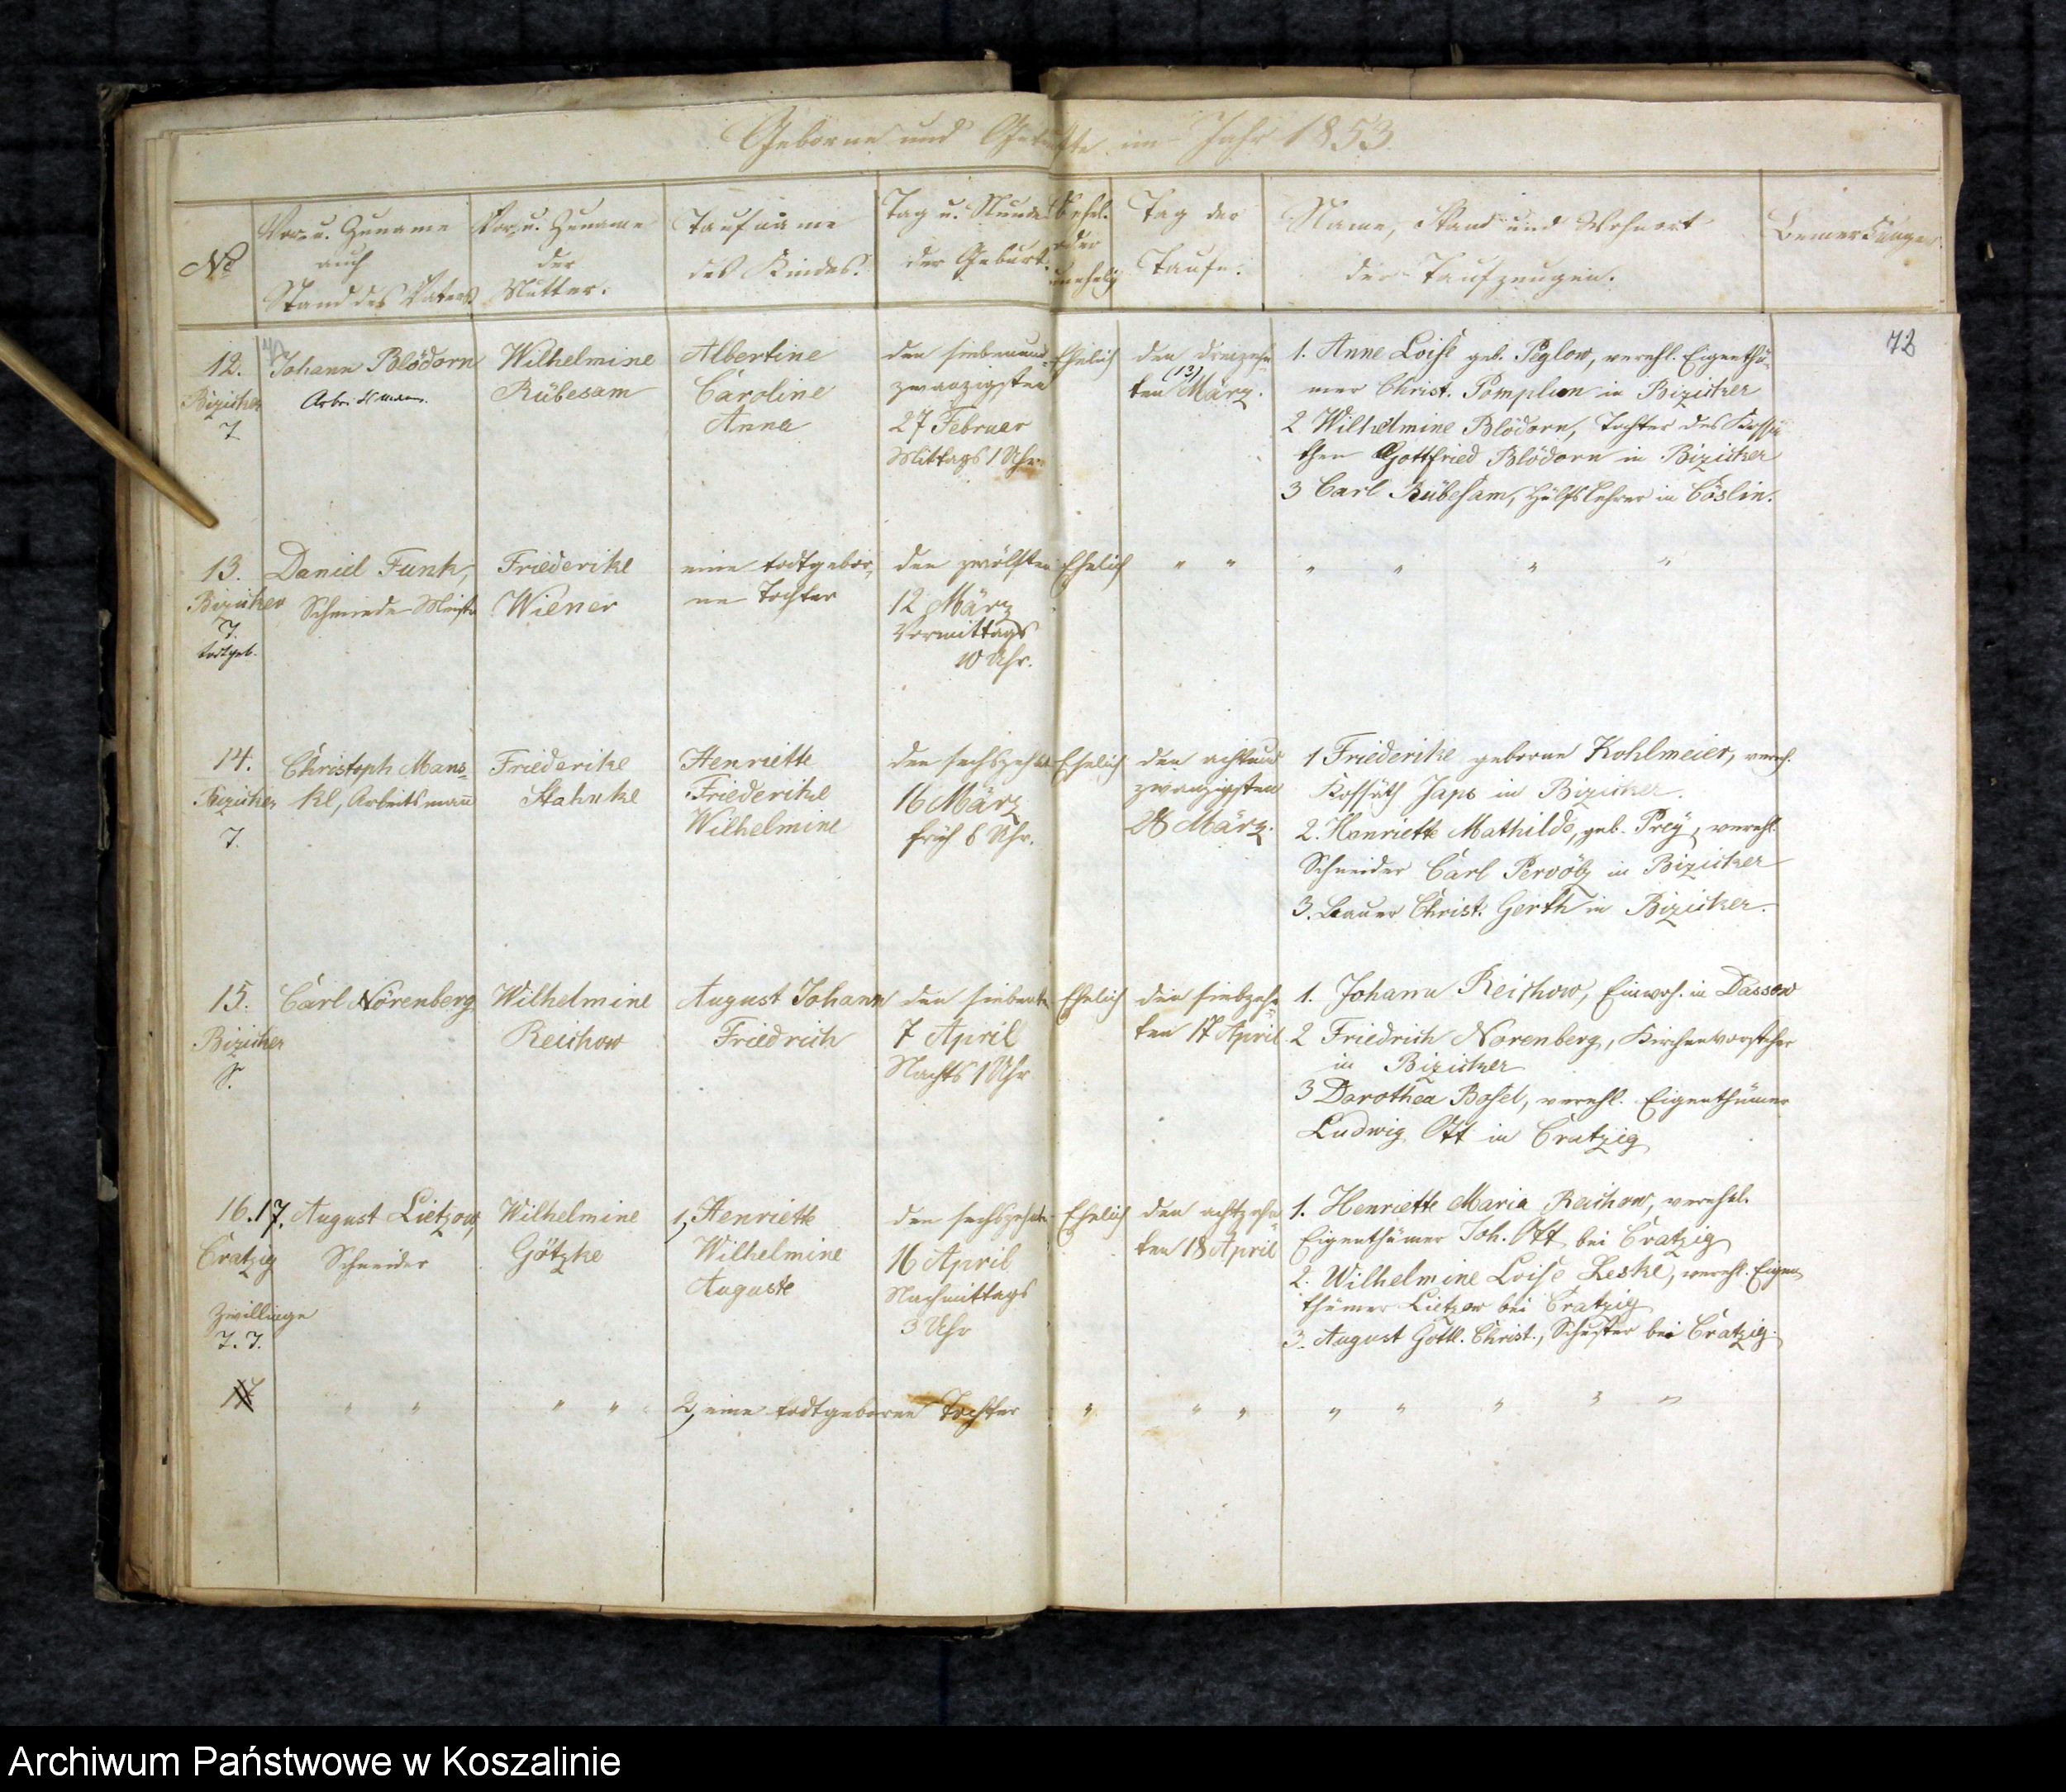 Geborne und Getaufte im Jahr 1853.
No
Vor- u. Zuname
auch
Stand des Vaters.
Vor- u. Zuname
der
Mutter.
Taufname
des Kindes.
Tag u. Stunde
der Geburt.
Ehel.
oder
unehelig
Tag der
Taufe.
Name, Stand und Wohnort
der Taufzeugen.
Bemerkungen.
72
12.
Bizicker
T
Johann Blödorn
Arbeitsmann.
Wilhelmine
Rübesam
Albertine
Caroline
Anna
den siebenund-
zwanzigsten
27 Februar
Mittags 1 Uhr.
Ehelich
den dreizehn
ten (13) März.
1. Anne Loise geb. Peglow, verehl. Eigenthü-
mer Christ. Pomplun in Bizicker
2 Wilhelmine Blödorn, Tochter des Kossä-
then Gottfried Blödorn in Bizicker
3 Carl Rübesam, Hülfslehrer in Cöslin.
13.
Bizicker
T.
todtgeb.
Daniel Funk,
Schmiede-Meister
Friederike
Wiener
eine todtgebor-
ne Tochter
den zwölften
12 März
Vormittags
10 Uhr.
Ehelich
" " " " " "
14.
Bizicker
T.
Christoph Mans-
ke, Arbeitsmann
Friederike
Stahnke
Henriette
Friederike
Wilhelmine
den sechszehnten
16 März
früh 6 Uhr.
Ehelich
den achtund
zwanzigsten
28 März.
1 Friederike geborne Kohlmeier, vereh.
Kossäth Japs in Bizicker.
2. Henriette Mathilde, geb. Prey, verehl.
Schneider Carl Pervölz in Bizicker
3. Bauer Christ. Gerth in Bizicker.
15.
Bizicker
S.
Carl Nörenberg
Wilhelmine
Reichow
August Johann
Friedrich
den siebenten
7 April
Nachts 1 Uhr
Ehelich
den siebzehn
ten 17 April
1. Johann Reichow, Einwoh. in Dassow
2 Friedrich Norenberg, Kirchenvorsteher
in Bizicker
3 Dorothea Bosel, verehl. Eigenthümer
Ludwig Ott in Cratzig
16.17.
Cratzig
Zwillinge
T. T.
August Lietzow,
Schneider
Wilhelmine
Götzke
1, Henriette
Wilhelmine
Auguste
den sechszehnten
16 April
Nachmittags
3 Uhr
Ehelich
den achtzehn
ten 18 April
1. Henriette Maria Reichow, verehel.
Eigenthümer Joh. Ott bei Cratzig
2. Wilhelmine Loise Leske, verehl. Eigen
thümer Lietzow bei Cratzig
3. August Gottl. Christ., Schuster bei Cratzig.
17
" " " " 2, eine todtgeborne Tochter " " " " " " " "
Archiwum Państwowe w Koszalinie